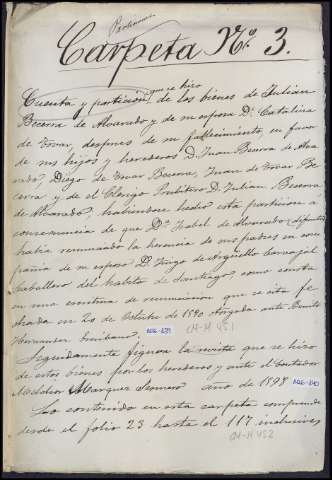 Particiones
Carpeta Nº 3.
que se hizo
Cuenta y particion de los bienes de Julian
Becerra de Alvarado y de su esposa Dª Catalina
de Tovar, despues de su fallecimiento, en favor
de sus hijos y herederos D. Juan Becerra de Alva
rado, Diego de Tovar Becerra, Juan de Tovar Be
cerra y de el Clerigo Presbitero D. Julian Becerra
de Alvarado, habiendose hecho esta particion á
consecuencia de que Dª Isabel de Alvarado (difunta)
había renunciado la herencia de sus padres en com
pañia de su esposo D. Diego de Argüello Carvajal
caballero del habito de Santiago, como consta
en una escritura de renunciacion que se cita fe
chada en 20 de Octubre de 1590 otorgada ante Benito
Hernandez escribano.
CM-M 451
Seguidamente figura la revista que se hizo
de estos bienes por los herederos y ante el Contador
Melchior Marquez año de 1598
Lo contenido en esta carpeta comprende
desde el folio 23 hasta el 117 inclusives
CM-M 452